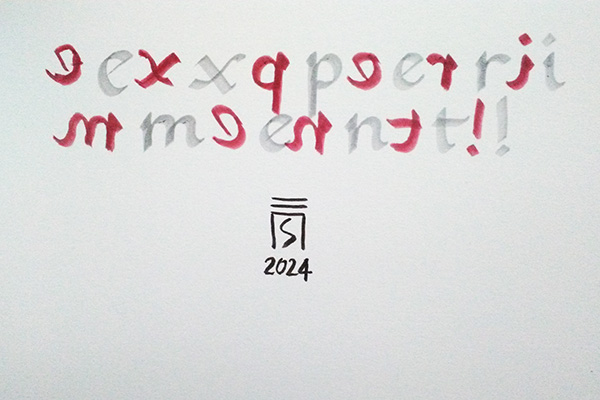 eexxqpeerrii
mmeenntt!!
S
2024